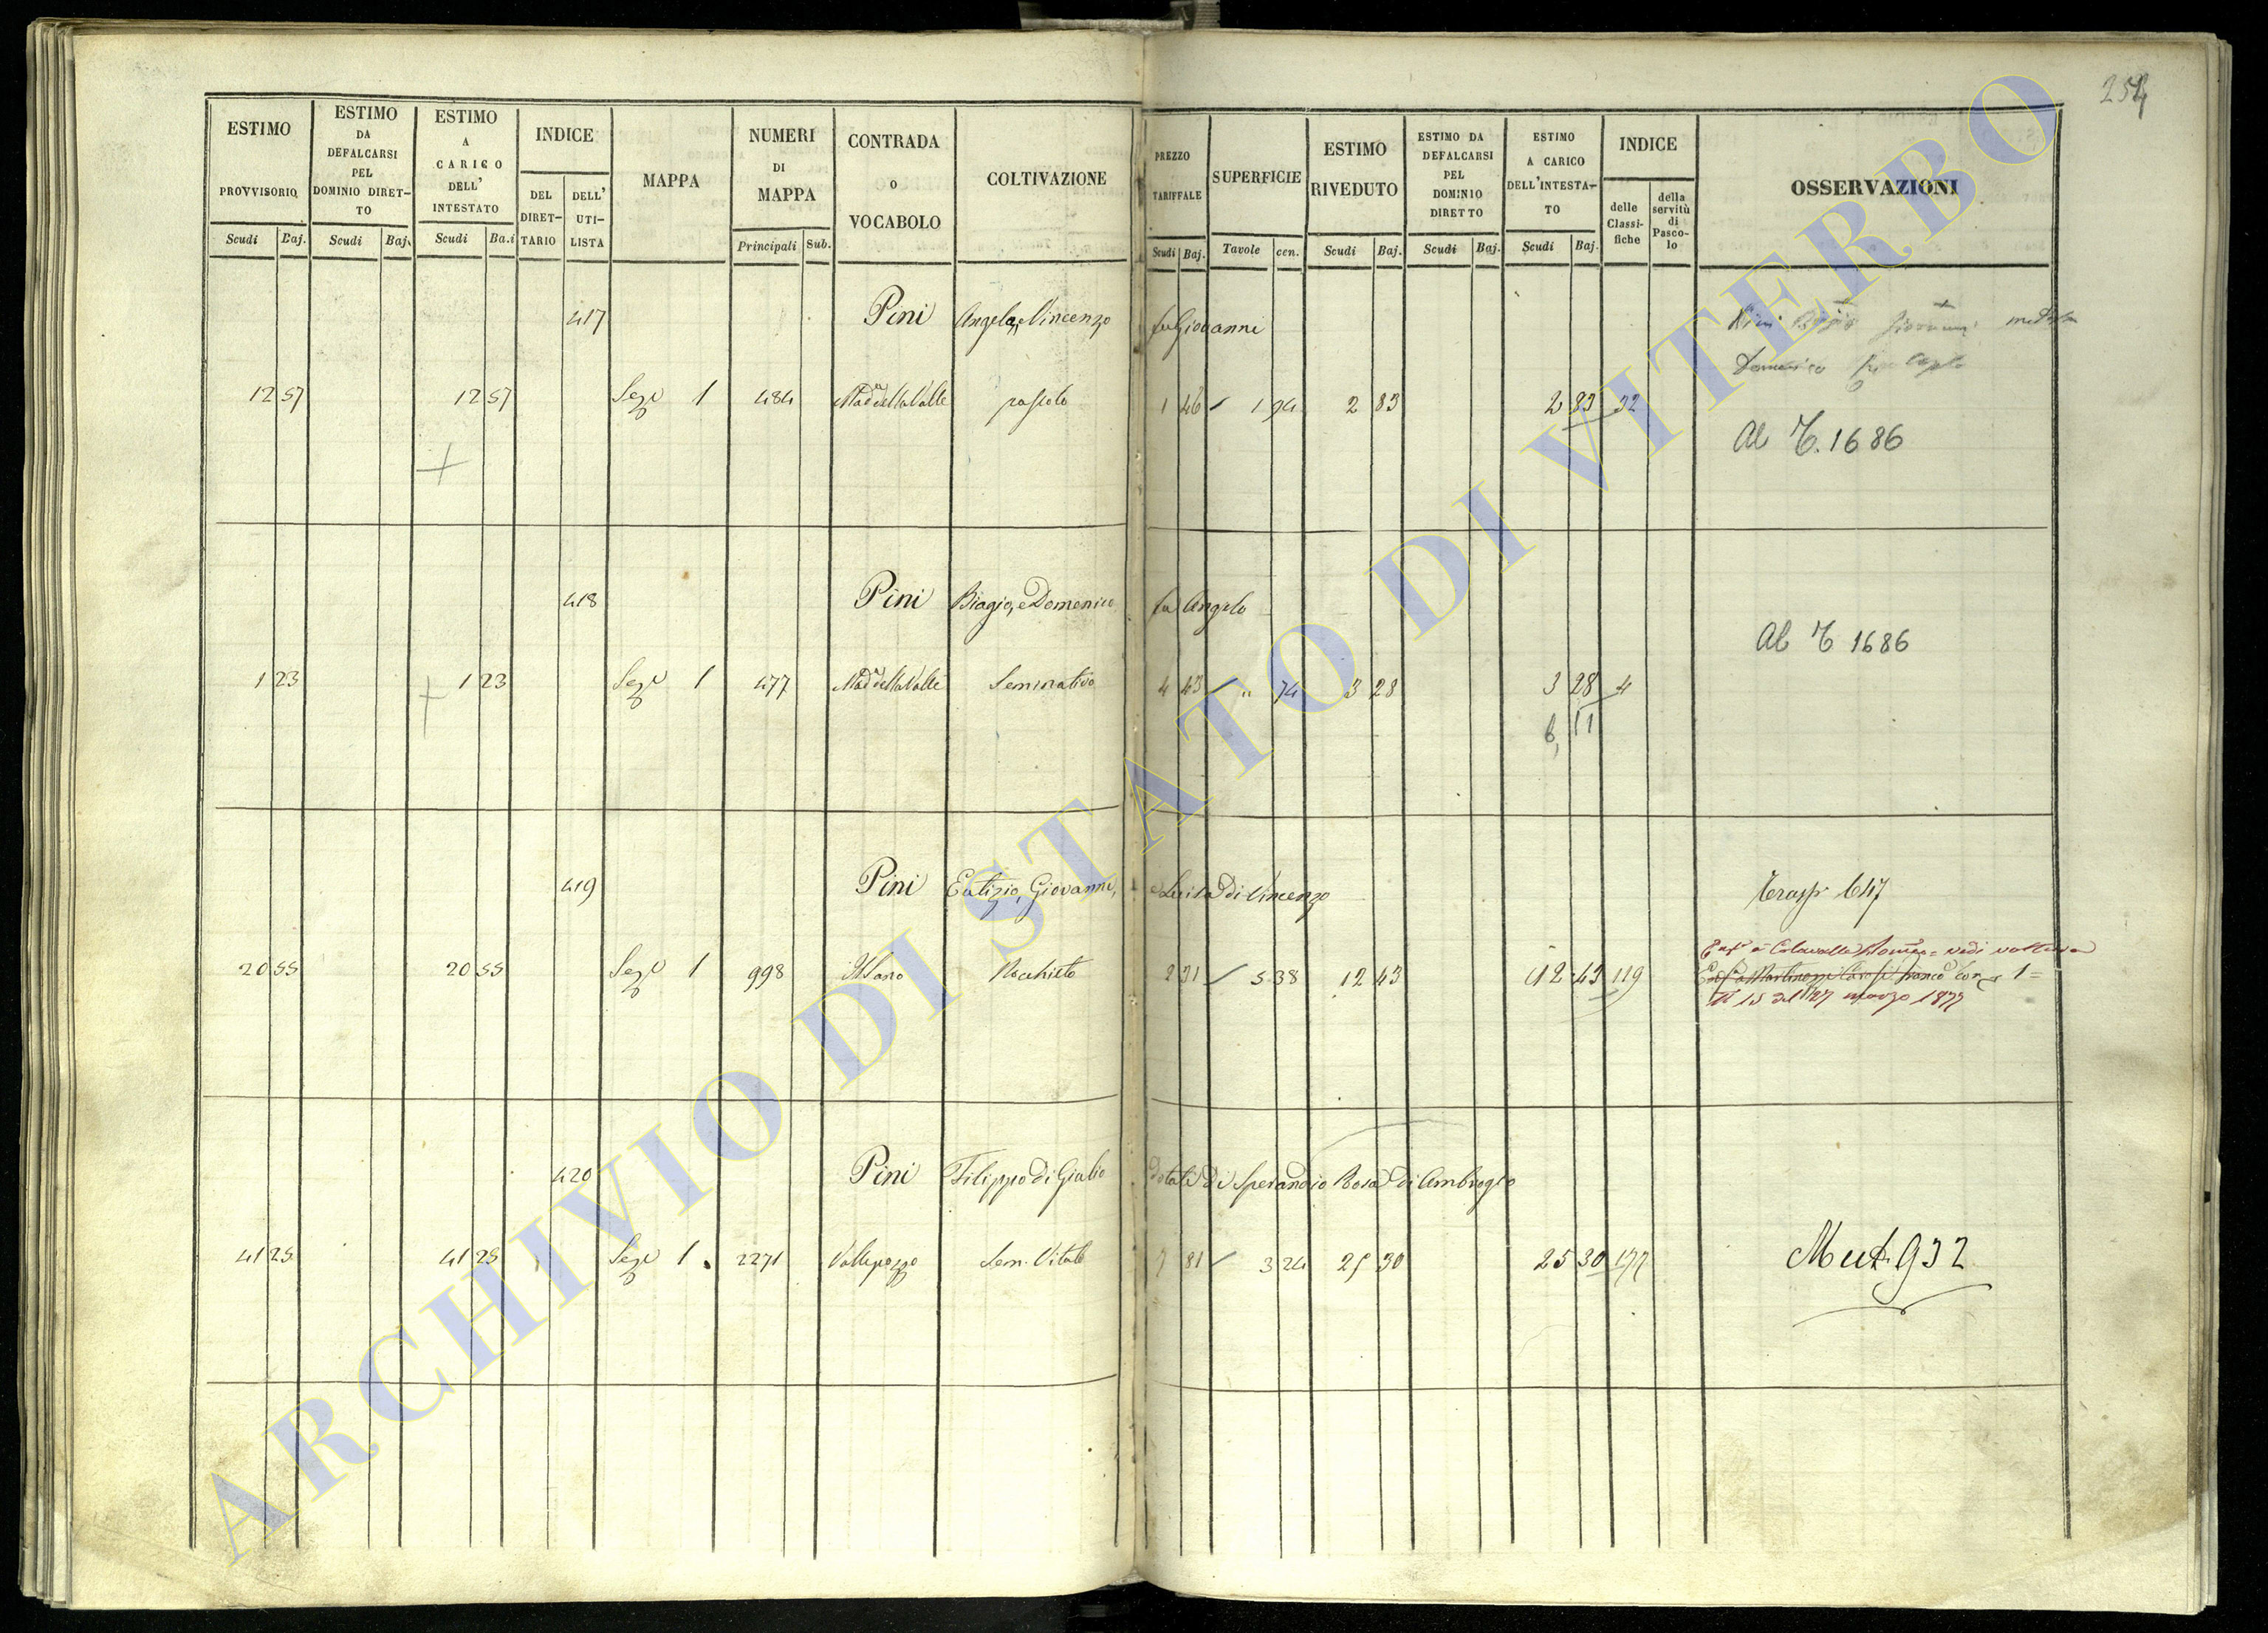 254
ESTIMO PROVVISORIO Scudi Baj.
ESTIMO DA DEFALCARSI PEL DOMINIO DIRET-TO Scudi Baj.
ESTIMO A CARICO DELL' INTESTATO Scudi Ba.i
INDICE DEL DIRET-TARIO DELL' UTI-LISTA
MAPPA
NUMERI DI MAPPA Principali Sub.
CONTRADA O VOCABOLO
COLTIVAZIONE
PREZZO TARIFFALE Scudi Baj.
SUPERFICIE Tavole cen.
ESTIMO RIVEDUTO Scudi Baj.
ESTIMO DA DEFALCARSI PEL DOMINIO DIRETTO Scudi Baj.
ESTIMO A CARICO DELL'INTESTA-TO Scudi Baj.
INDICE delle Classi-fiche della servitù di Pasco-lo
OSSERVAZIONI
417 Pini Angelo, e Vincenzo fu Giovanni
12 57 12 57 Sez.e 1 484 Mad.a della Valle pascolo 1 46 1 94 2 83 2 83 32
Al T. 1686
418 Pini Biagio, e Domenico fu Angelo
Al T 1686
1 23 1 23 Sez.e 1 477 Mad.a della Valle Seminativo 4 43 " 74 3 28 3 28 4
6, 11
419 Pini Eutizio, Giovanni, e Luisa di Vincenzo
Trasp. 647
20 55 20 55 Sez.e 1 998 2 31 5 38 12 43 12 43 119
vedi voltura
N 15 del 27 marzo 1877
420 Pini Filippo di Giulio dotali di Sperandio Rosa di Ambrogio
41 25 41 25 Sez.e 1. 2271 Vallepozzo Sem. Vitato 7 81 3 24 25 30 25 30 177
Mut. 932
ARCHIVIO DI STATO DI VITERBO